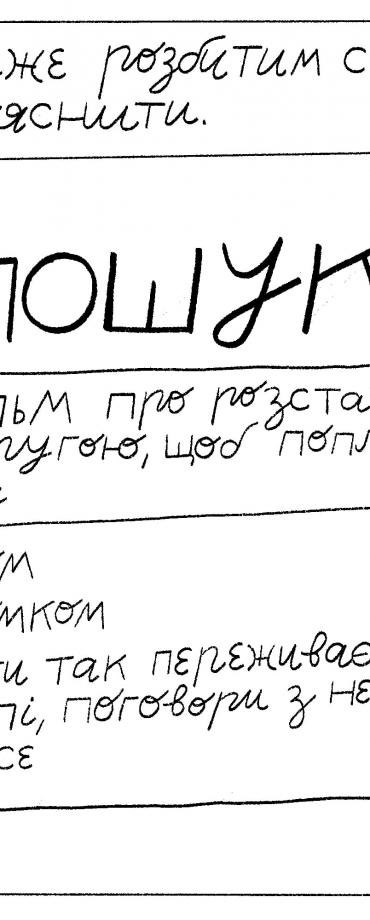 же розбитим с
яснити.
ПОШУК
льм про розста
ругою, щоб попл
ом
мком
ти так переживає
лі, поговори з не
се